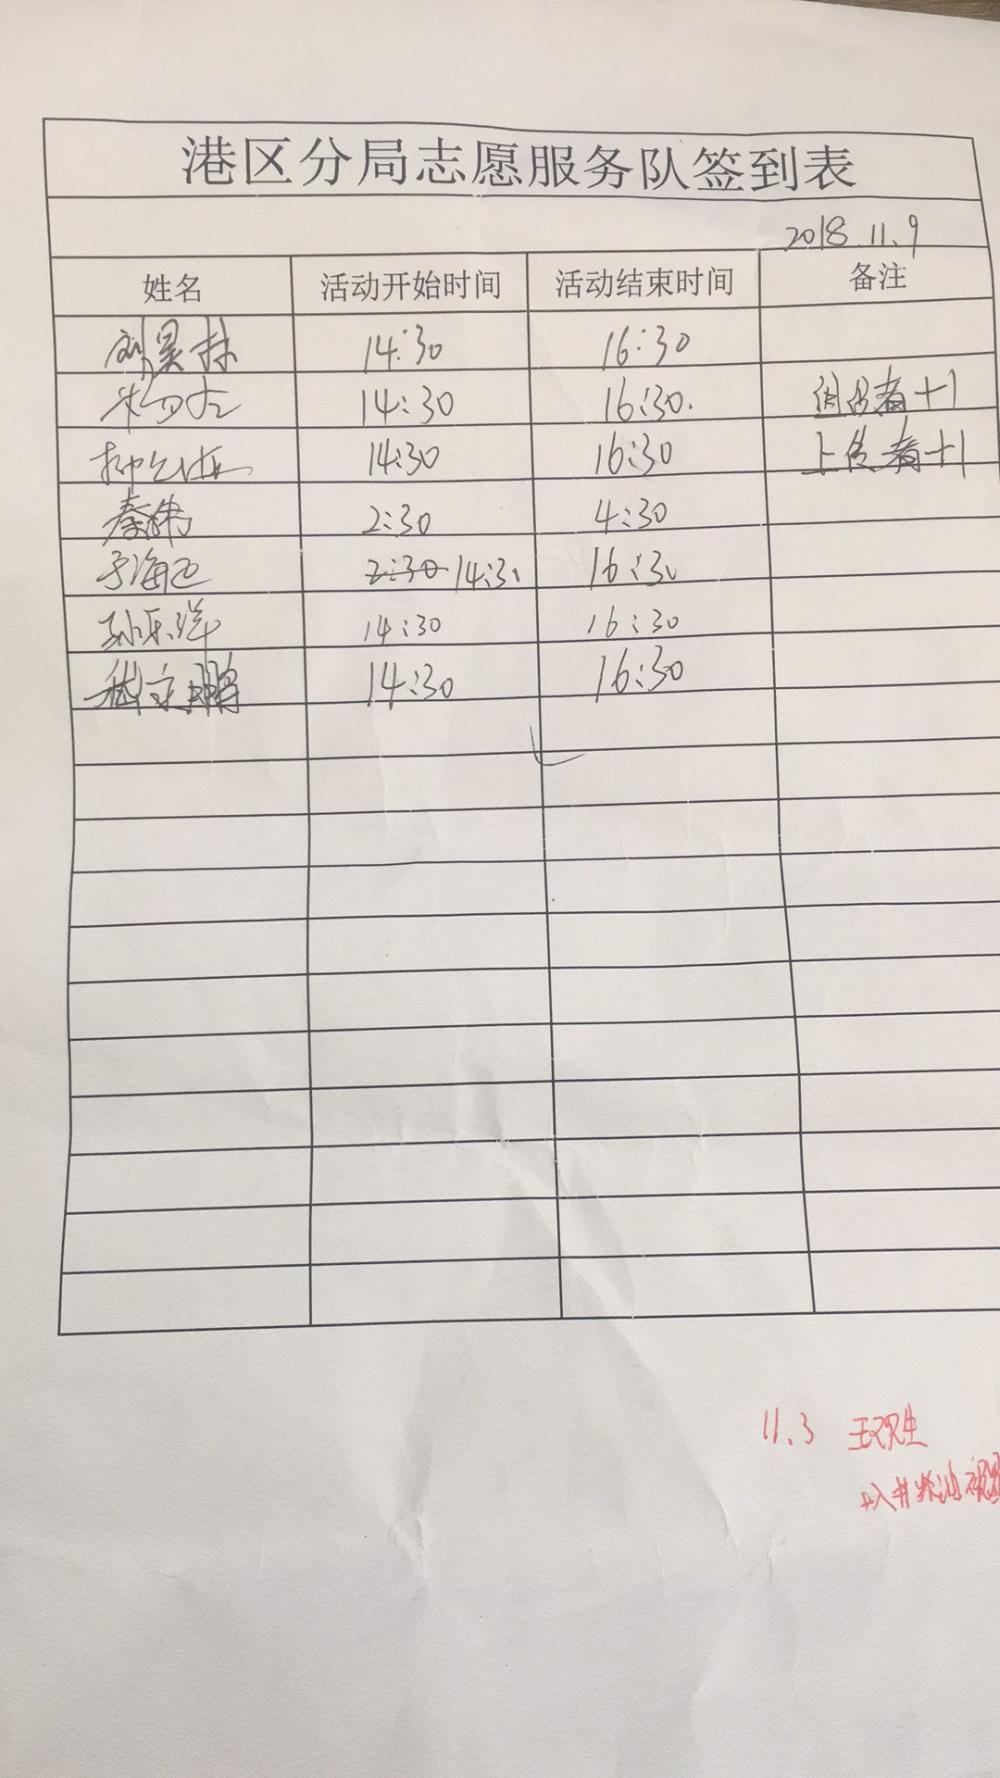 港区分局志愿服务队签到表
2018.11.9
姓名 活动开始时间 活动结束时间 备注
刘昊林 14:30 16:30
14:30 16:30. 组织者+1
14:30 16:30 上传者+1
秦伟 2:30 4:30
于海 2:30 14:30 16:30
孙乐洋 14:30 16:30
14:30 16:30
11.3